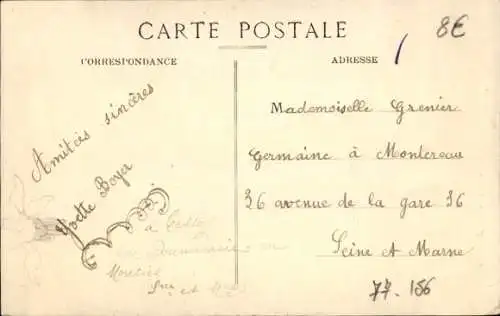 CARTE POSTALE
8€
CORRESPONDANCE
ADRESSE
Amitiés sincères
Yvette Boyer
Mademoiselle Grenier
Germaine à Montereau
36 avenue de la gare 36
Seine et Marne
77-156